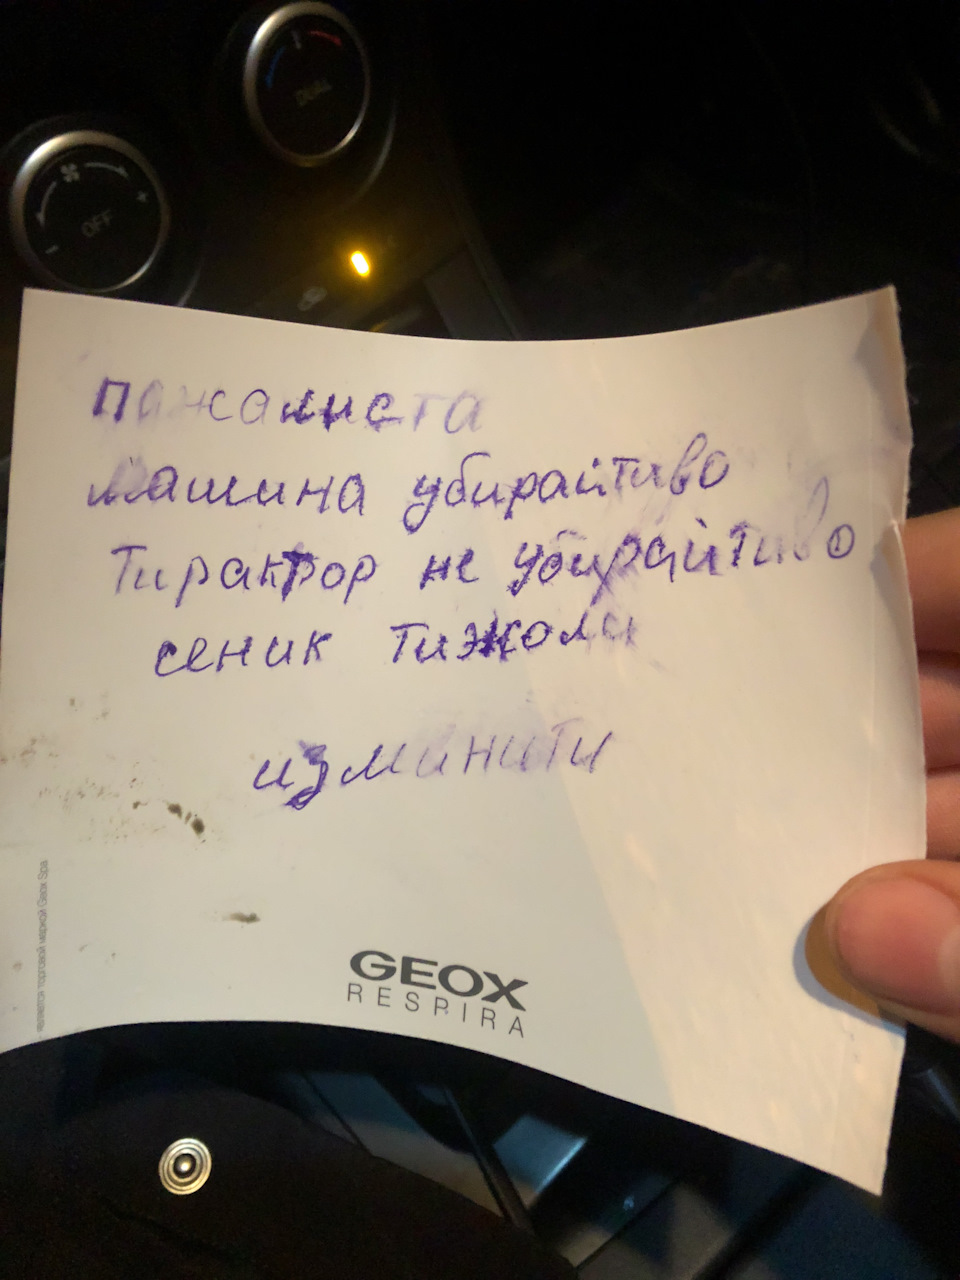 DUAL
OFF
пажалиста
машина убирайтиво
Тирактор не убирайтиво
сеник Тижоли
изминити
GEOX
RESPIRA
является торговой маркой Geox Spa